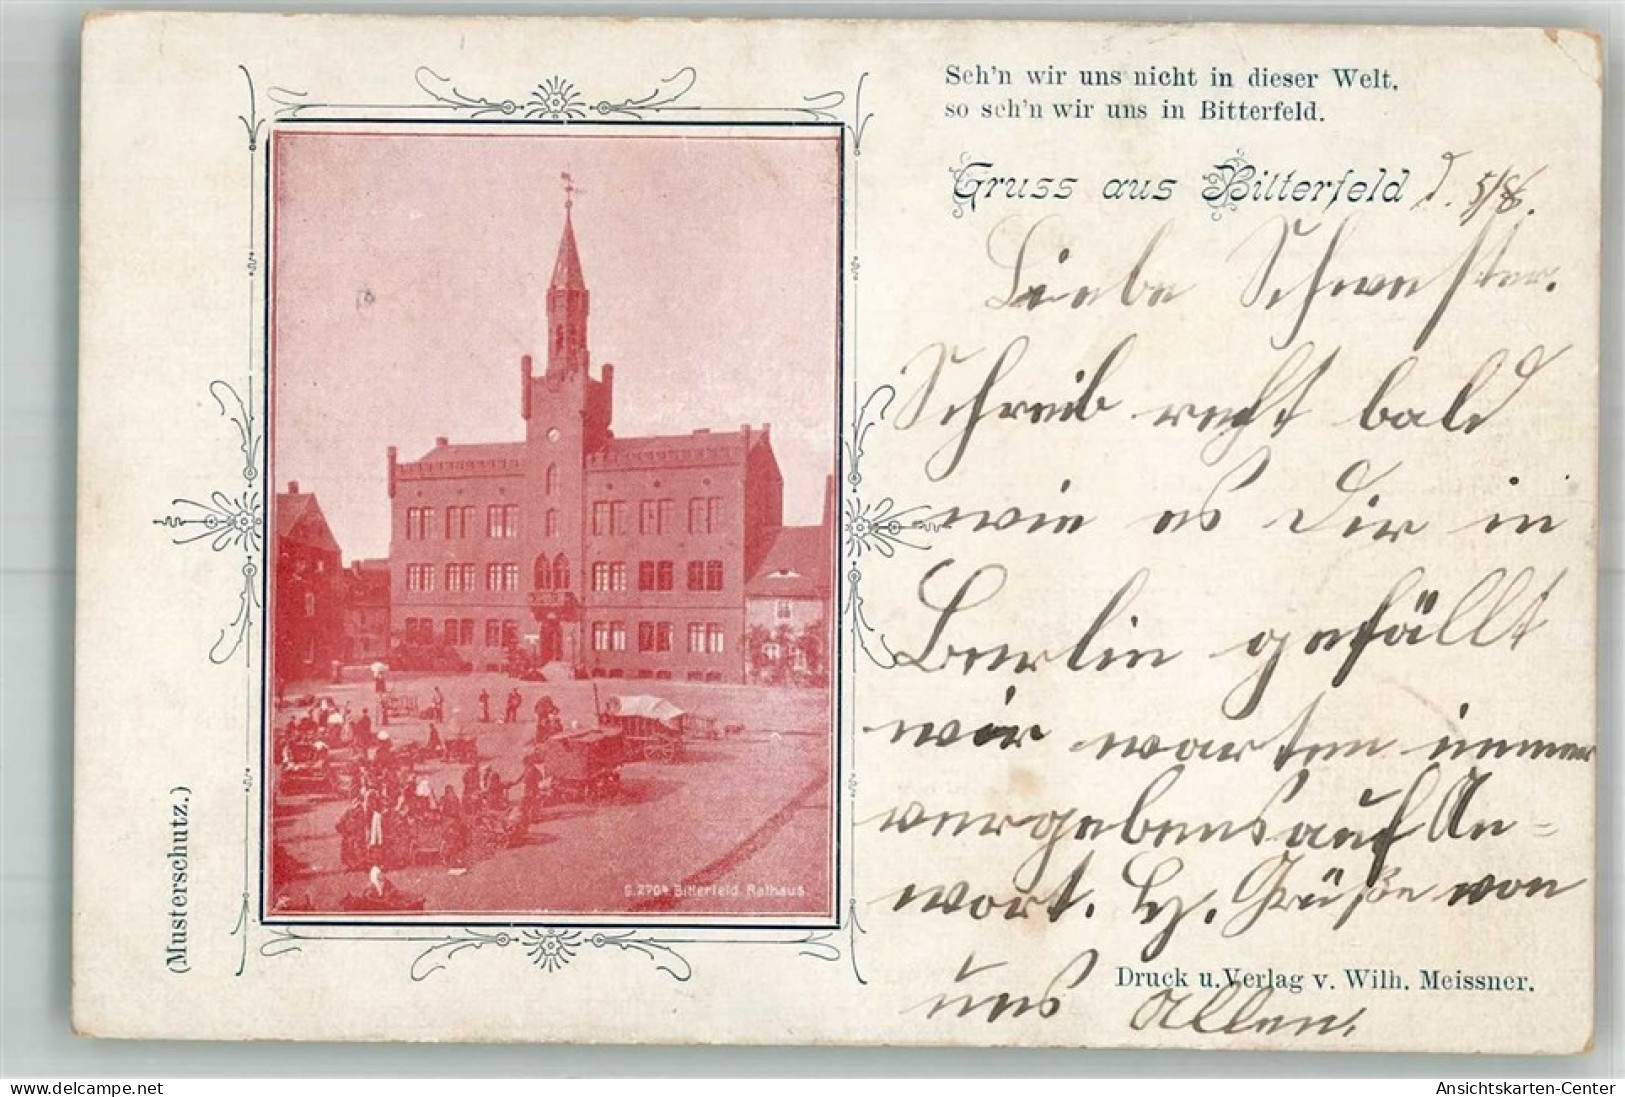 Seh'n wir uns nicht in dieser Welt,
so seh'n wir uns in Bitterfeld.
Gruss aus Bitterfeld d. 5/8.
Liebe Schwester.
Schreib recht bald
wie es Dir in
Berlin gefällt
wir warten immer
vergebens auf An-
wort. Hz. Grüße von
uns allen.
Druck u. Verlag v. Wilh. Meissner.
(Musterschutz.)
G. 2704 Bitterfeld. Rathaus
delcampe.net
Ansichtskarten-Center